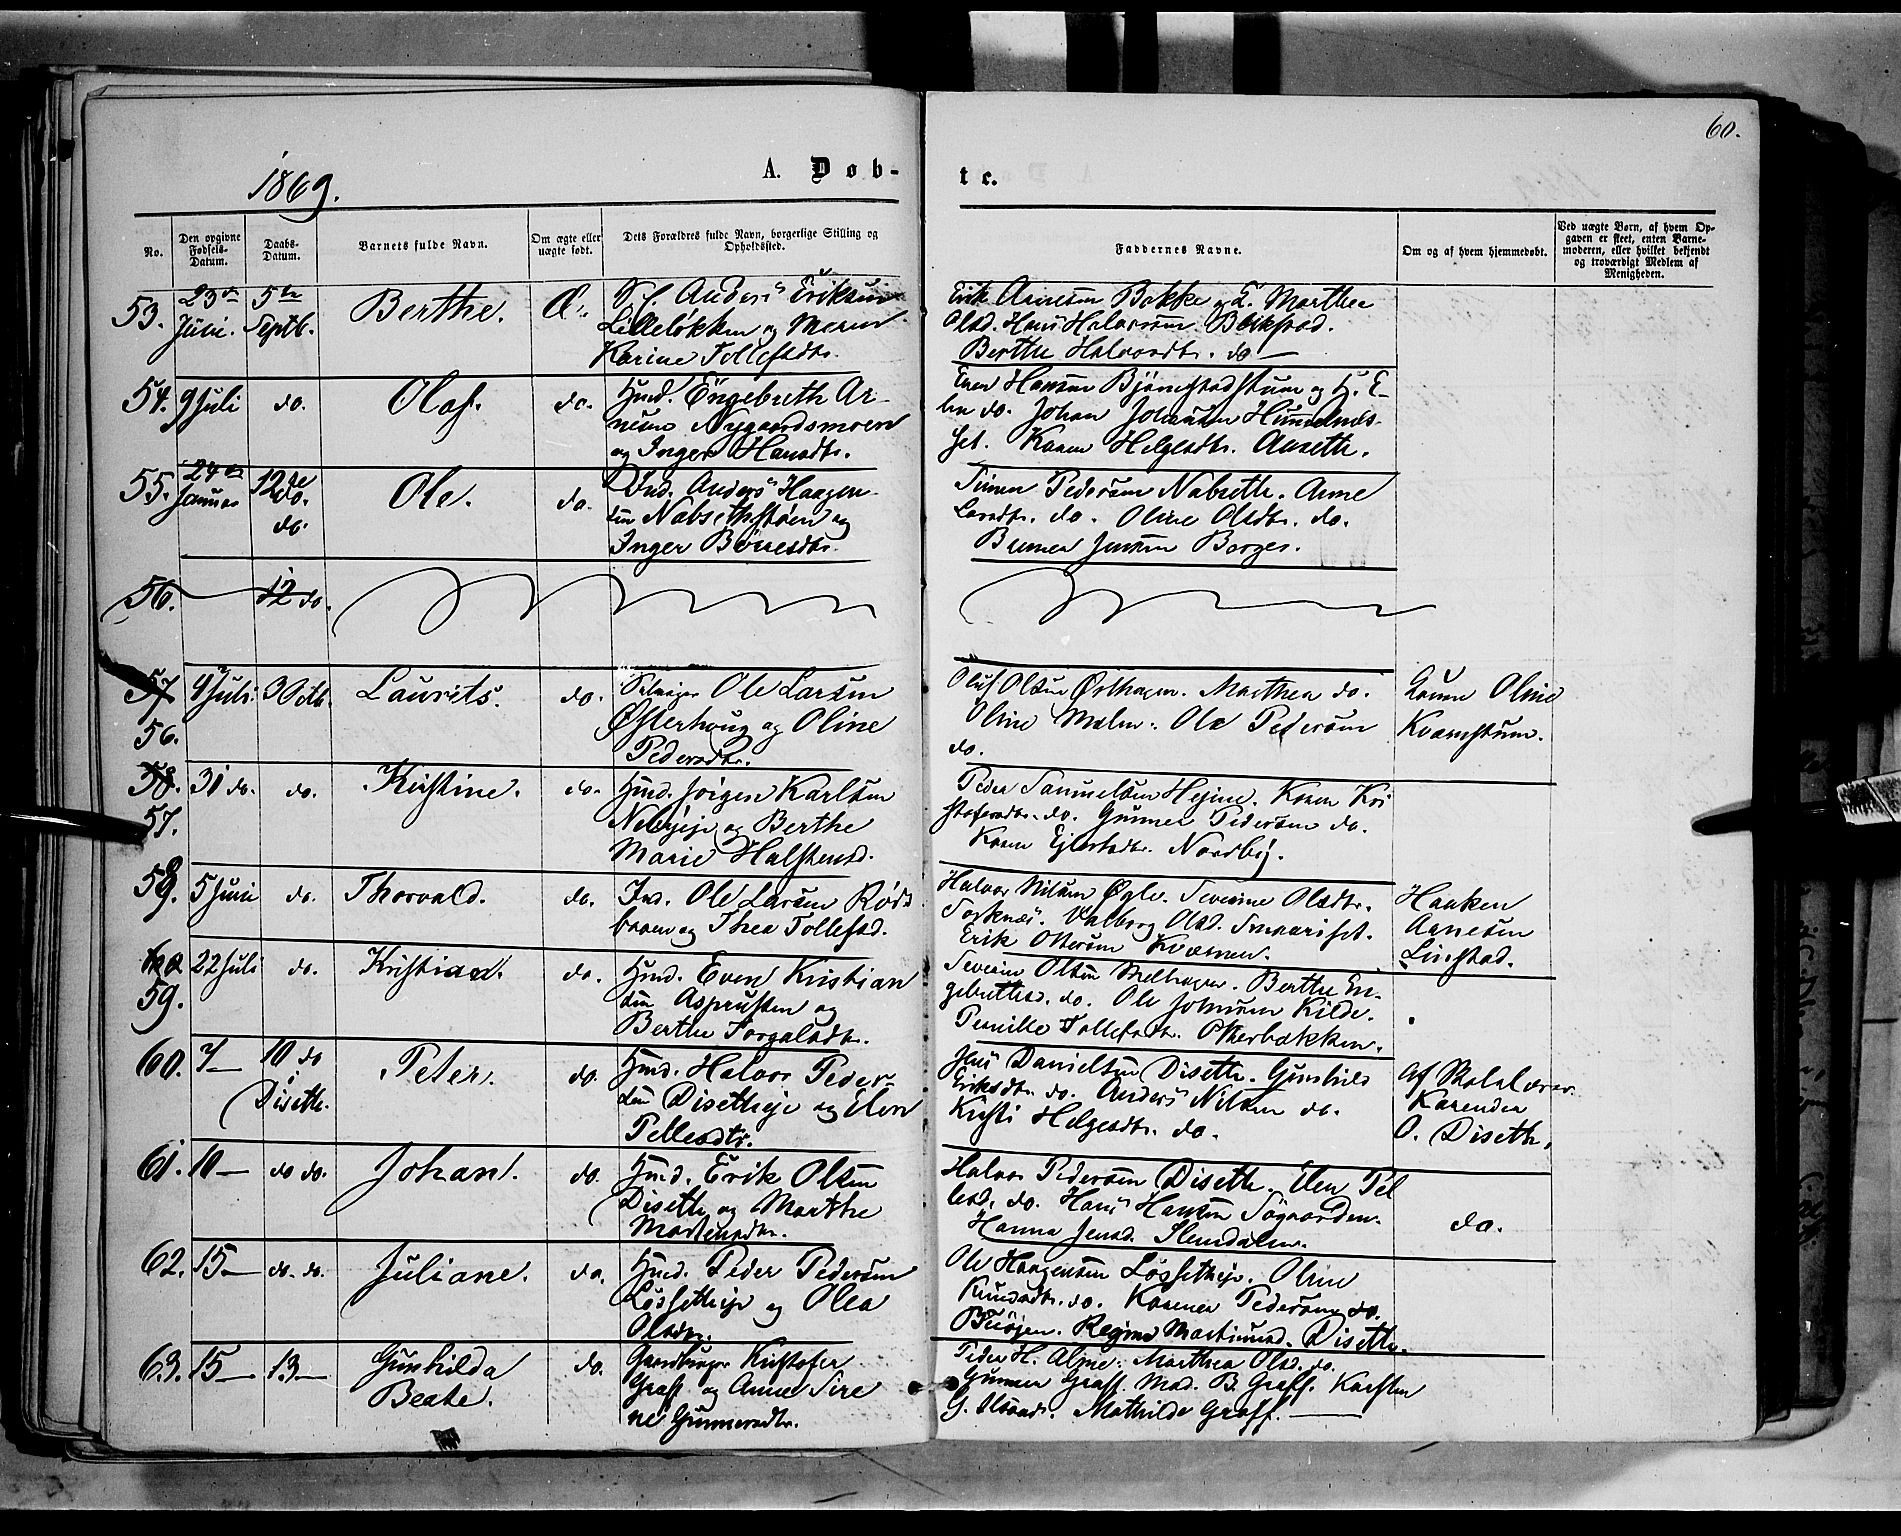 60.
1869.
A. Døb-
te.
No.
Den opgivne Fødsels-Datum.
Daabs-Datum.
Barnets fulde Navn.
Om ægte eller uægte født.
Dets Forældres fulde Navn, borgerlige Stilling og Opholdssted.
Faddernes Navne.
Om og af hvem hjemmedøbt.
Ved uægte Børn, af hvem Opgaven er skeet, enten Barnemoderen, eller hvilket bekjendt og troværdigt Medlem af Menigheden.
53. 23de Juni. 5te Septb. Berthe. Æ.
Anders Eriksen
Lilleløkken og Maren
Karine Tollefsdtr.
Erik Arnesen Bakke og Marthea
Olsd. Hans Halvorsen
Berthe Halvorsdtr. do
54. 9 Juli do. Olaf. do.
Hmd. Engebreth Ar-
nesen Nygaardsmoen
og Inger Hansdtr.
Even Hansen Bjørnstadstuen og H. E-
len do. Johan Johansen
set. Karen Helgesdtr. Aaseth.
55. 24de Januar 12te do. do. Ole. do.
Ind. Anders Haagen-
sen Nabsethstøen og
Inger Børresdtr.
Simen Pedersen Nabseth. Anne
Larsdtr. do. Oline Olsdtr. do.
Jensen Borges.
56. 12 do.
57 56. 4 Juli 3 Octb. Laurits. do.
Selveier Ole Larsen
Østerhoug og Oline
Pedersdtr.
Oluf Olsen Østhagen. Marthea do.
Oline Mælum. Ole Pedersen
do.
Oline
Kvernstuen.
58. 57. 31 do. do. Kristine. do.
Hmd. Jørgen Karlsen
og Berthe
Marie Halstensd.
Peder Samuelsen Hejne. Karen Kri
stofersdtr. do. Gunner Pedersen do.
Karen Nordby.
58. 5 Juni do. Thorvald. do.
Ind. Ole Larsen Røds
braaen og Thea Tollefsd.
Halvor Nilsen Øgle. Severine Olsdtr.
Valborg Olsd.
Erik Ottersen Kværnen.
Haaken
Arnesen
Linstad.
59. 22 Juli do. Kristian. do.
Hmd. Even Kristian
sen Asprusten og
Berthe Torgalsdtr.
Severin Olsen Melhagen. Berthe En-
gebrettsd. do. Ole Johnsen Kilde.
Pernille Tollefsdtr. Otterbækken.
60. 7 — 10 do Diseth. Peter. do.
Hmd. Halvor Peder-
sen Disetheje og Elen
Pellesdtr.
Jens Danielsen Diseth. Gunhild
Eriksdtr. do. Anders Nilsen do.
Kristi Helgesdtr. do.
af Skolelærer
Karender
O. Diseth.
61. 10 — do do. Johan. do.
Hmd. Erik Olsen
Diseth og Marthe
Mortensdtr.
Halvor Pedersen Diseth. Elen Pel
lesd. do. Hans Hansen Søgaarden.
Hanna Jensd. Slemdalen.
do.
62. 15 — do. do. Juliane. do.
Hmd. Peder Pedersen
Løssetheje og Olea
Olsdtr.
Ole Haagensen Løssetheje. Oline
Knudsdtr. do. Karenea Pedersen do.
Regine Martinusd. Diseth.
63. 15 — 13 — Gunhilda
Beate. do.
Gaardbruger Kristofer
Graff og Anne Sire
ne Gunnersdtr.
Peder H. Alme. Marthea Olsd. do.
Gunner Graff. Mad. B. Graff. Karsten
G. Mathilde Graff.